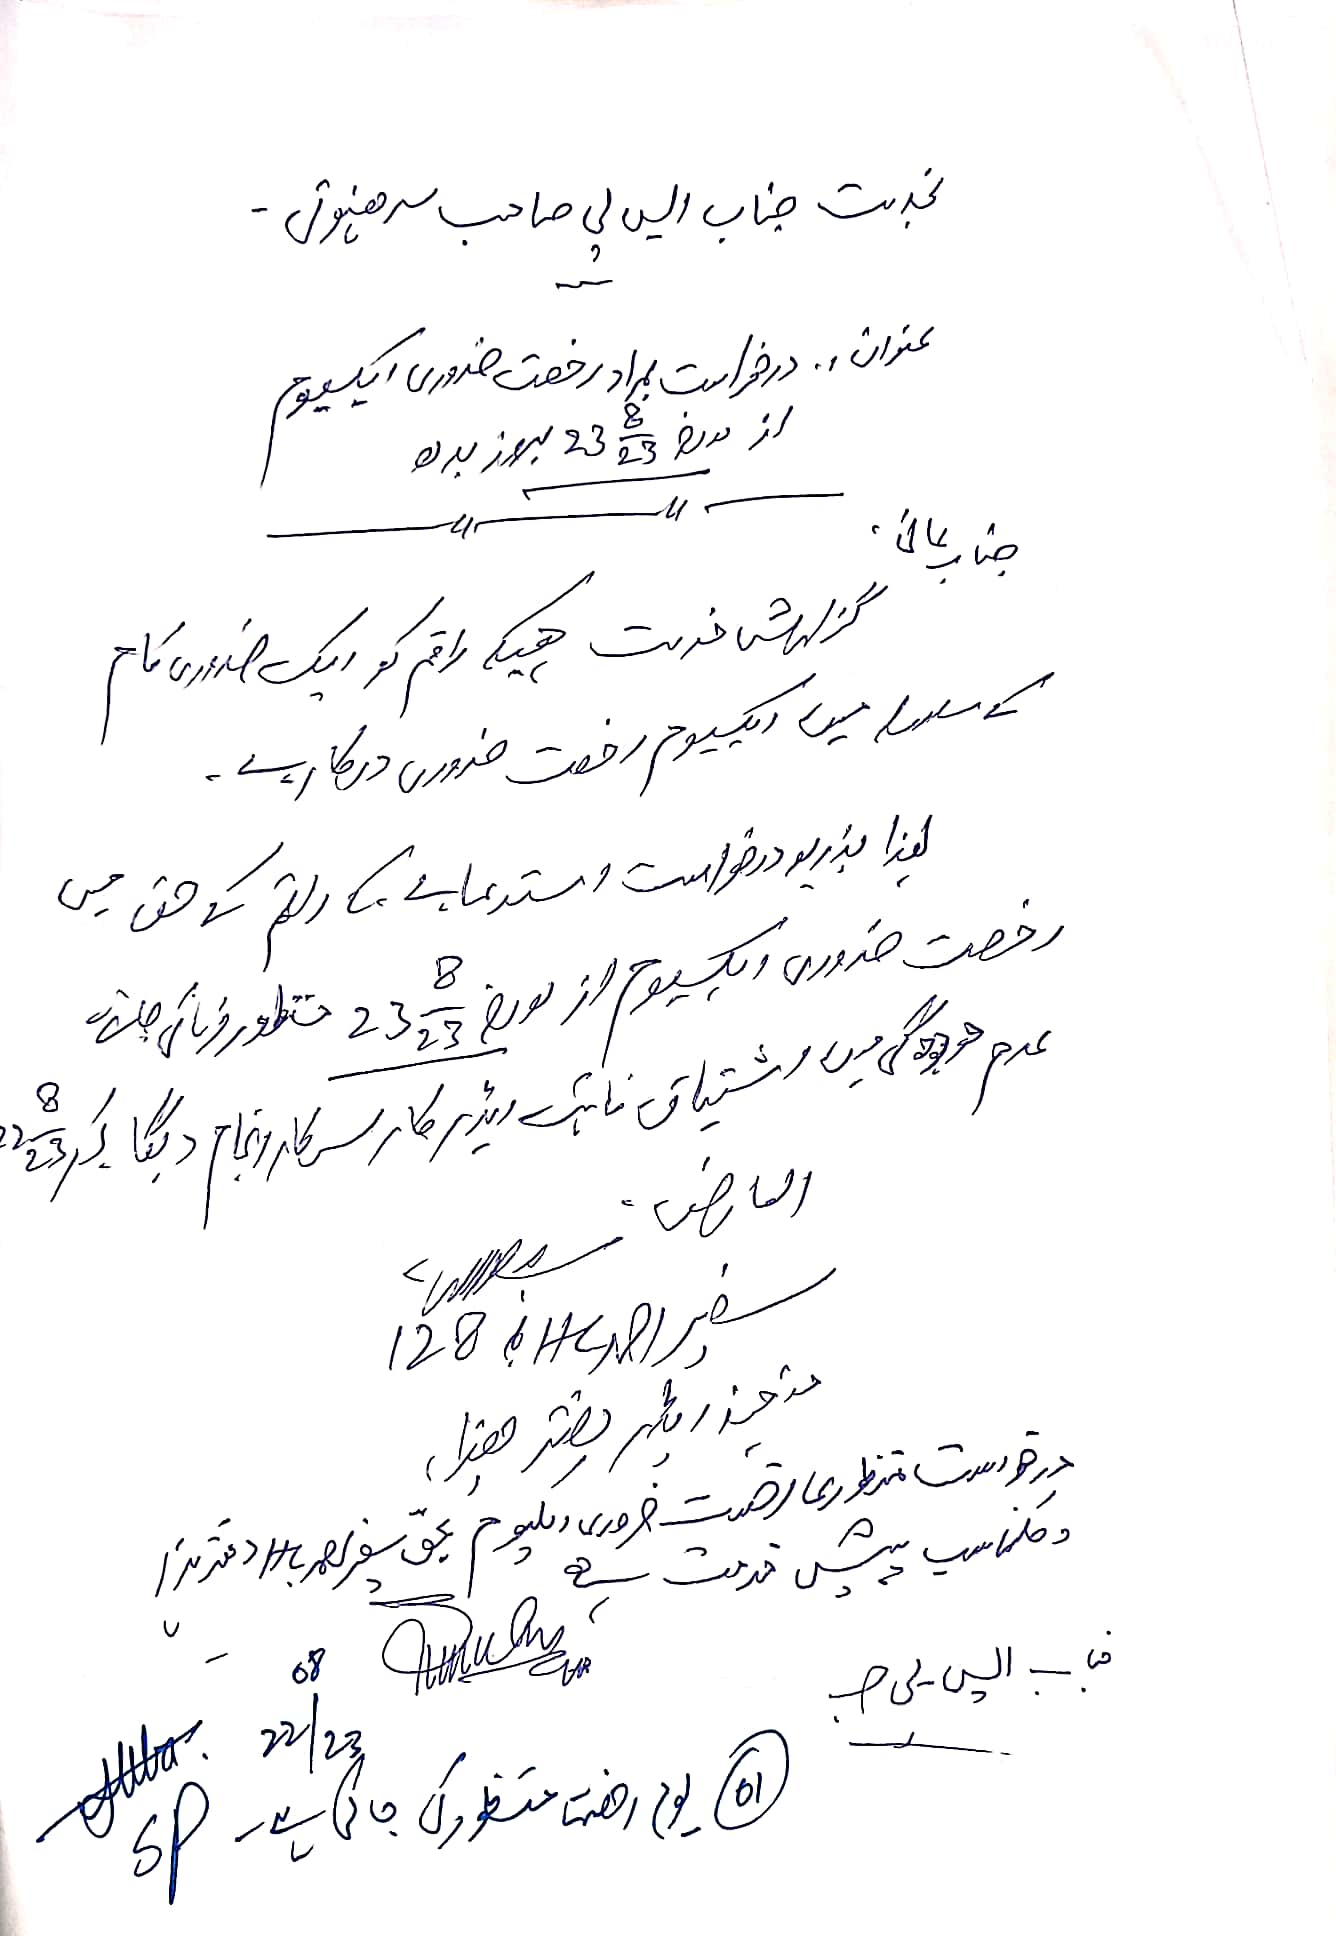 بخدمت جناب ایس پی صاحب سدھنوتی -
عنوان :. درخواست بمراد رخصت ضروری ایکیوم
از مورخہ 23 8/23 بروز بدھ
جناب عالی!
گزارش خدمت ہیکہ راقم کو ایک ضروری کام
کے سلسلہ میں ایکیوم رخصت ضروری درکار ہے -
لہذا بذریعہ درخواست استدعا ہے کہ راقم کے حق میں
رخصت ضروری ایکیوم از مورخہ 23 8/23 منظور فرمائی جائے
عدم موجودگی میں اشتیاق نائب ریڈر کار سرکار انجام دیگا 22 8/23
العارض
سفیر احمد HC نمبر 128
متعینہ ریڈر دفتر ھذا
درخواست منظوری رخصت ضروری ایکیوم بحق سفیر احمد HC دفتر ہذا
مناسب پیش خدمت ہے
08
22/23
جناب ایس پی صاحب
01 یوم رخصت منظور کی جاتی ہے -
SP